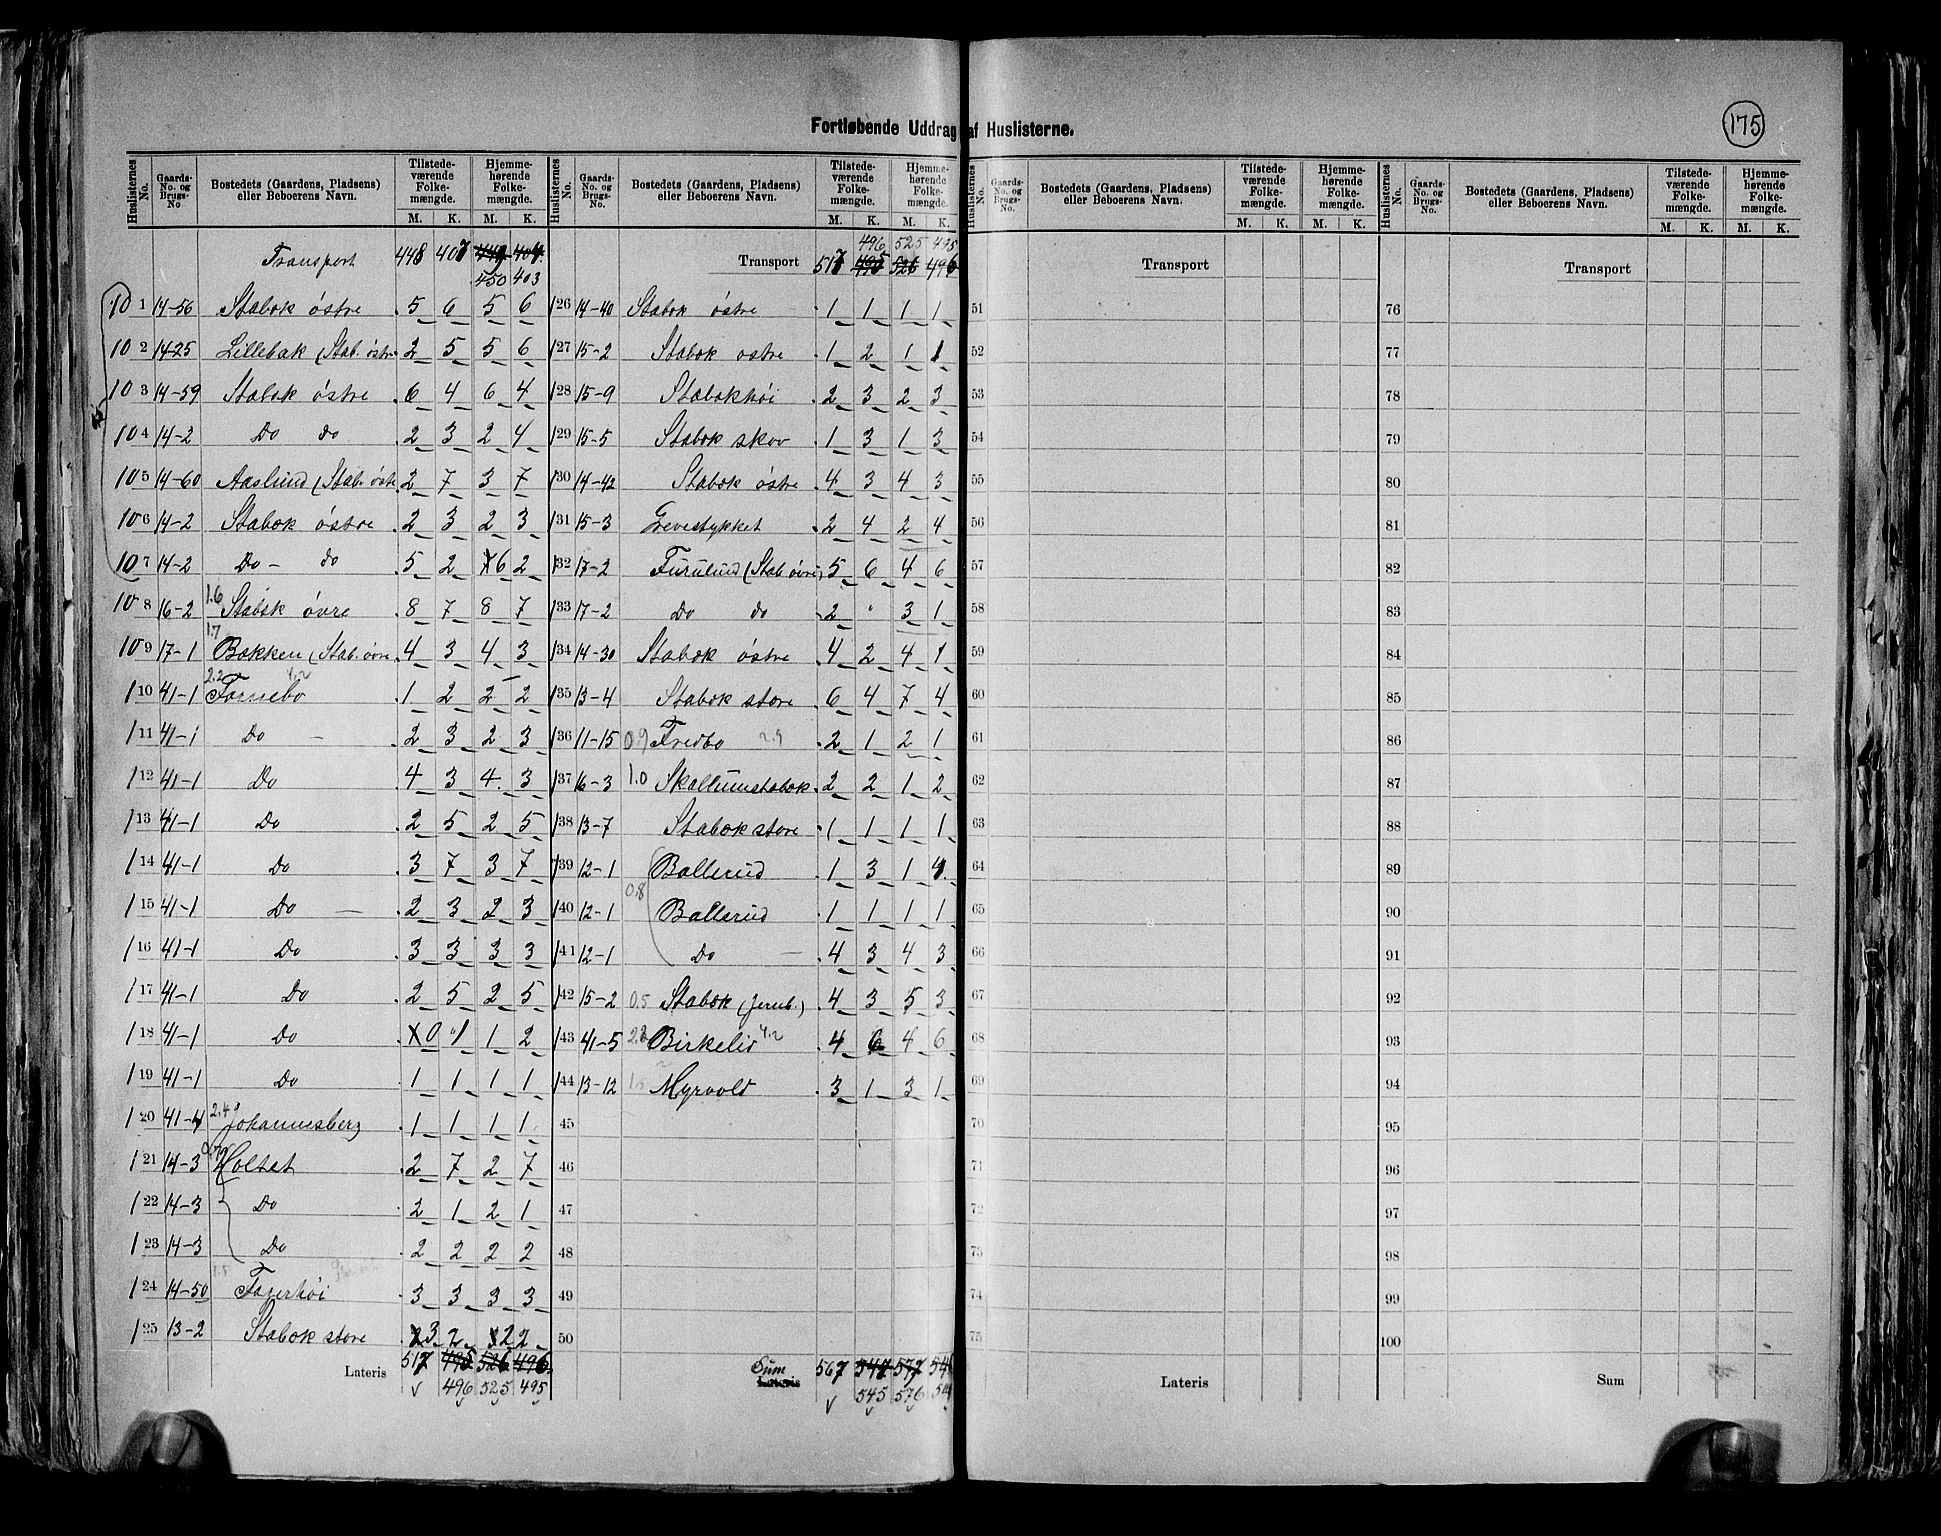 175
Fortløbende Uddrag af Huslisterne.
Huslisternes No. | Gaards-No. og Brugs-No | Bostedets (Gaardens, Pladsens) eller Beboerens Navn. | Tilstedeværende Folkemængde. M. K. | Hjemmehørende Folkemængde. M. K.
Transport 448 407 449 404
450 403
10 1 14-56 Stabæk østre 5 6 5 6
10 2 14-25 Lillebæk (Stab. østre 2 5 5 6
10 3 14-59 Stabæk østre 6 4 6 4
10 4 14-2 Do do 2 3 2 4
10 5 14-60 Aaslund (Stab. østre 2 7 3 7
10 6 14-2 Stabæk østre 2 3 2 3
10 7 14-2 Do - do 5 2 6 2
10 8 16-2 1.6 Stabæk øvre 8 7 8 7
10 9 17-1 1.7 Bakken (Stab. øvre 4 3 4 3
1 10 41-1 2.2 Fornebo 4.2 1 2 2 2
1 11 41-1 Do - 2 3 2 3
1 12 41-1 Do 4 3 4 3
1 13 41-1 Do 2 5 2 5
1 14 41-1 Do 3 7 3 7
1 15 41-1 Do - 2 3 2 3
1 16 41-1 Do 3 3 3 3
1 17 41-1 Do 2 5 2 5
1 18 41-1 Do 0 1 1 2
1 19 41-1 Do 1 1 1 1
1 20 41-4 2.4 Johannesberg 1 1 1 1
1 21 14-3 Holtet 2 7 2 7
1 22 14-3 Do 2 1 2 1
1 23 14-3 Do 2 2 2 2
1 24 14-50 1.5 Fagerhøi 3 3 3 3
1 25 13-2 Stabæk store 3 2 2 2
Lateris 517 495 526 496
496 525 495
Huslisternes No. | Gaards-No. og Brugs-No. | Bostedets (Gaardens, Pladsens) eller Beboerens Navn. | Tilstedeværende Folkemængde. M. K. | Hjemmehørende Folkemængde. M. K.
496 525 495
Transport 517 495 526 496
1 26 14-40 Stabæk østre 1 1 1 1
1 27 15-2 Stabæk østre 1 2 1 1
1 28 15-9 Stabækhøi 2 3 2 3
1 29 15-5 Stabæk skov 1 3 1 3
1 30 14-42 Stabæk østre 4 3 4 3
1 31 15-3 Grevestykket 2 4 2 4
1 32 17-2 Furulund (Stab. øvre) 5 6 4 6
1 33 17-2 Do do 2 " 3 1
1 34 14-30 Stabæk østre 4 2 4 1
1 35 13-4 Stabæk store 6 4 7 4
1 36 11-15 0.9 Fredbo 2.9 2 1 2 1
1 37 16-3 1.0 Skallumstabæk 2 2 1 2
1 38 13-7 Stabæk store 1 1 1 1
1 39 12-1 Ballerud 1 3 1 4
0.8
1 40 12-1 Ballerud 1 1 1 1
1 41 12-1 Do - 4 3 4 3
1 42 15-2 0.5 Stabæk (Jernb.) 4 3 5 3
1 43 41-5 Birkelid 4.2 4 6 4 6
1 44 13-12 Myrvold 3 1 3 1
45
46
47
48
49
50
Sum Lateris 567 544 577
545 576
Huslisternes No. | Gaards-No. og Brugs-No. | Bostedets (Gaardens, Pladsens) eller Beboerens Navn. | Tilstedeværende Folkemængde. M. K. | Hjemmehørende Folkemængde. M. K.
Transport
51
52
53
54
55
56
57
58
59
60
61
62
63
64
65
66
67
68
69
70
71
72
73
74
75
Lateris
Huslisternes No. | Gaards-No. og Brugs-No. | Bostedets (Gaardens, Pladsens) eller Beboerens Navn. | Tilstedeværende Folkemængde. M. K. | Hjemmehørende Folkemængde. M. K.
Transport
76
77
78
79
80
81
82
83
84
85
86
87
88
89
90
91
92
93
94
95
96
97
98
99
100
Sum